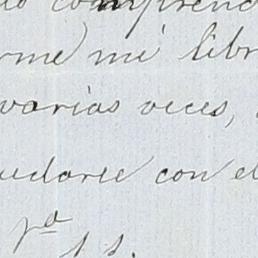 comprend
rme mi libr
varias veces,
uedarse con el
pª
s s.